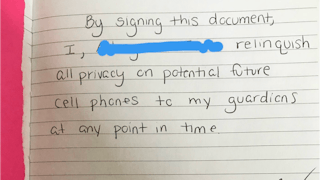 By signing this document,
I, relinquish
all privacy on potential future
cell phones to my guardians
at any point in time